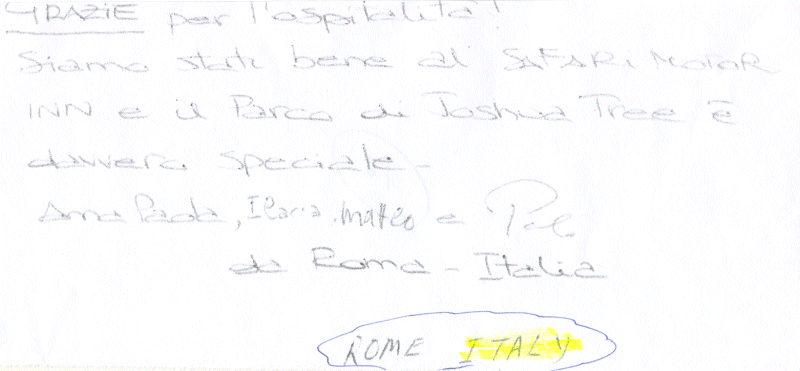 GRAZIE per l'ospitalità!
Siamo stati bene al SAFARI MOTOR
INN e il Parco di Joshua Tree è
davvero speciale -
Anna Paola, Ilaria, Matteo e
da Roma - Italia
ROME ITALY